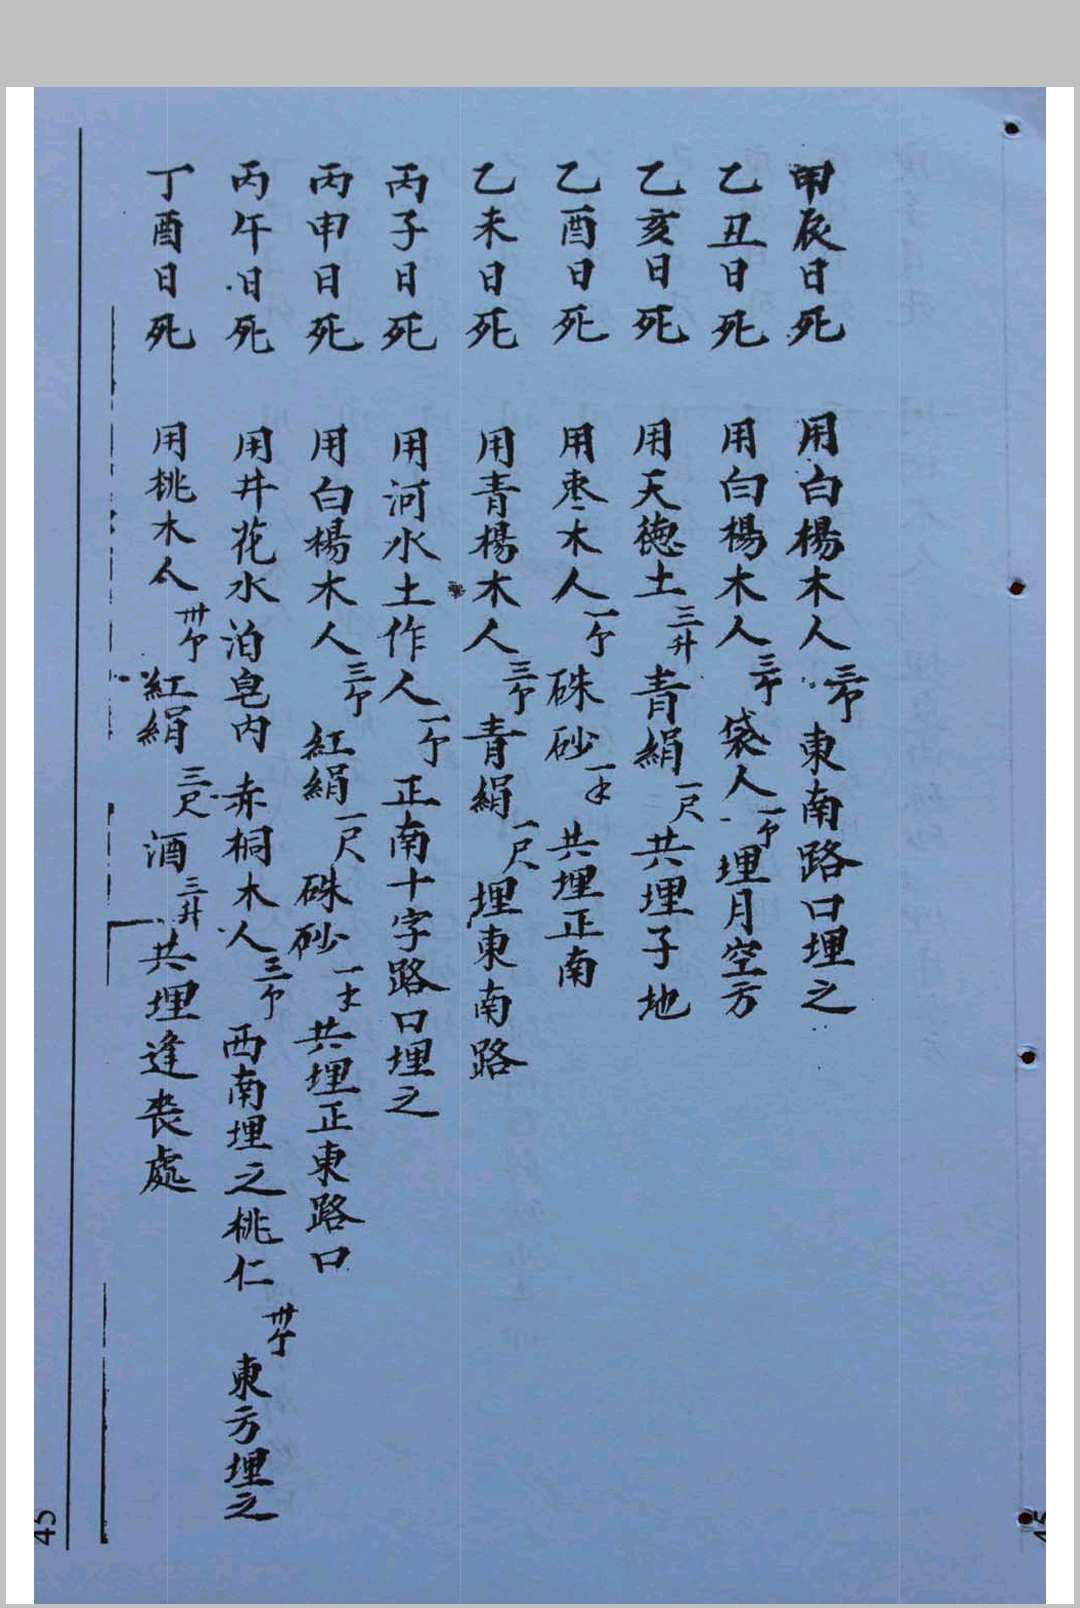 甲辰日死 用白楊木人三个東南路口埋之
乙丑日死 用白楊木人三个袋人一个埋月空方
乙亥日死 用天德土三升青絹一尺共埋子地
乙酉日死 用枣木人一个硃砂一手共埋正南
乙未日死 用青楊木人三个青絹一尺埋東南路
丙子日死 用河水土作人一个正南十字路口埋之
丙申日死 用白楊木人三个紅絹一尺硃砂一才共埋正東路口
丙午日死 用井花水泊皂内赤桐木人三个西南埋之桃仁卅个東方埋之
丁酉日死 用桃木人卅个紅絹三尺酒三升共埋逢丧處
45
45